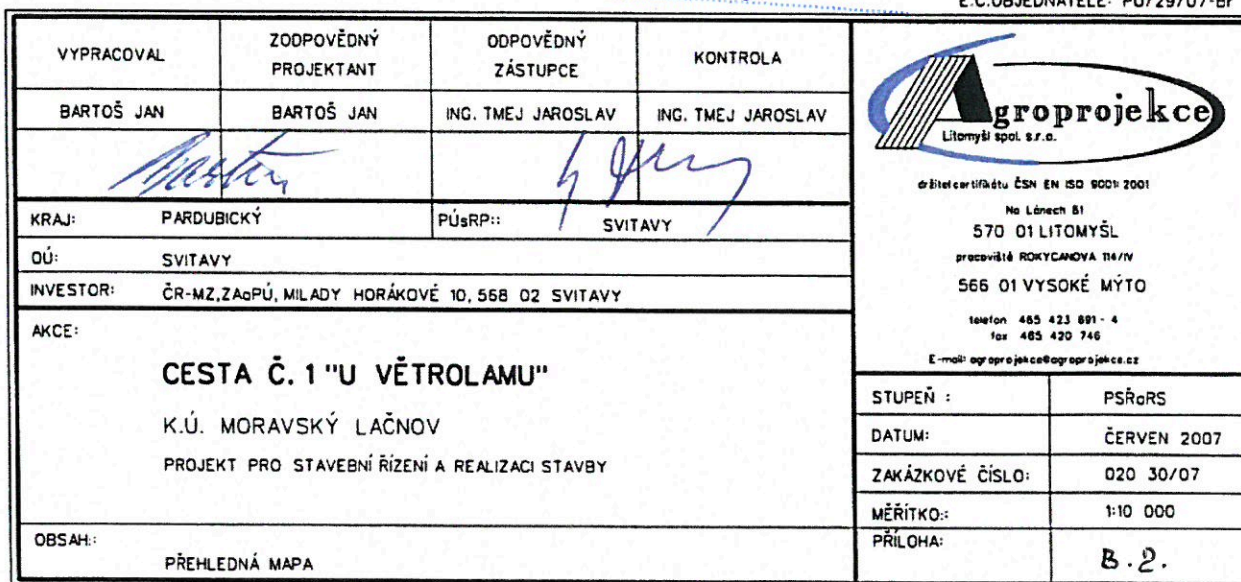 E.Č.OBJEDNATELE: PÚ/29/07-Br
VYPRACOVAL
ZODPOVĚDNÝ PROJEKTANT
ODPOVĚDNÝ ZÁSTUPCE
KONTROLA
BARTOŠ JAN
BARTOŠ JAN
ING. TMEJ JAROSLAV
ING. TMEJ JAROSLAV
KRAJ: PARDUBICKÝ
PÚaRP:: SVITAVY
OÚ: SVITAVY
INVESTOR: ČR-MZ,ZAaPÚ, MILADY HORÁKOVÉ 10, 568 02 SVITAVY
AKCE:
CESTA Č. 1 "U VĚTROLAMU"
K.Ú. MORAVSKÝ LAČNOV
PROJEKT PRO STAVEBNÍ ŘÍZENÍ A REALIZACI STAVBY
OBSAH::
PŘEHLEDNÁ MAPA
Agroprojekce
Litomyšl spol. s.r.o.
držitel certifikátu ČSN EN ISO 9001: 2001
Na Lánech 81
570 01 LITOMYŠL
pracoviště ROKYCANOVA 114/IV
566 01 VYSOKÉ MÝTO
telefon 465 423 691 - 4
fax 465 420 746
E-mail: agroprojekce@agroprojekce.cz
STUPEŇ : PSŘaRS
DATUM: ČERVEN 2007
ZAKÁZKOVÉ ČÍSLO: 020 30/07
MĚŘÍTKO:: 1:10 000
PŘÍLOHA: B.2.